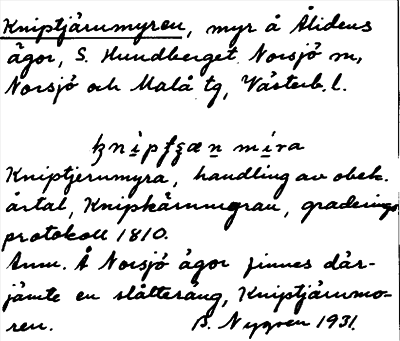 Kniptjärumyren, myr å Ålidens
ägor, S. Hundberget, Norsjö sn,
Norsjö och Malå tg, Västerb. l.
Kniptjerumyra, handling av obek.
årtal, Knipkärumyran, graderings
protokoll 1810.
Anm. Å Norsjö ägor finnes där-
jämte en slåtteräng, Kniptjärumo-
ren. B. Nygren 1931.